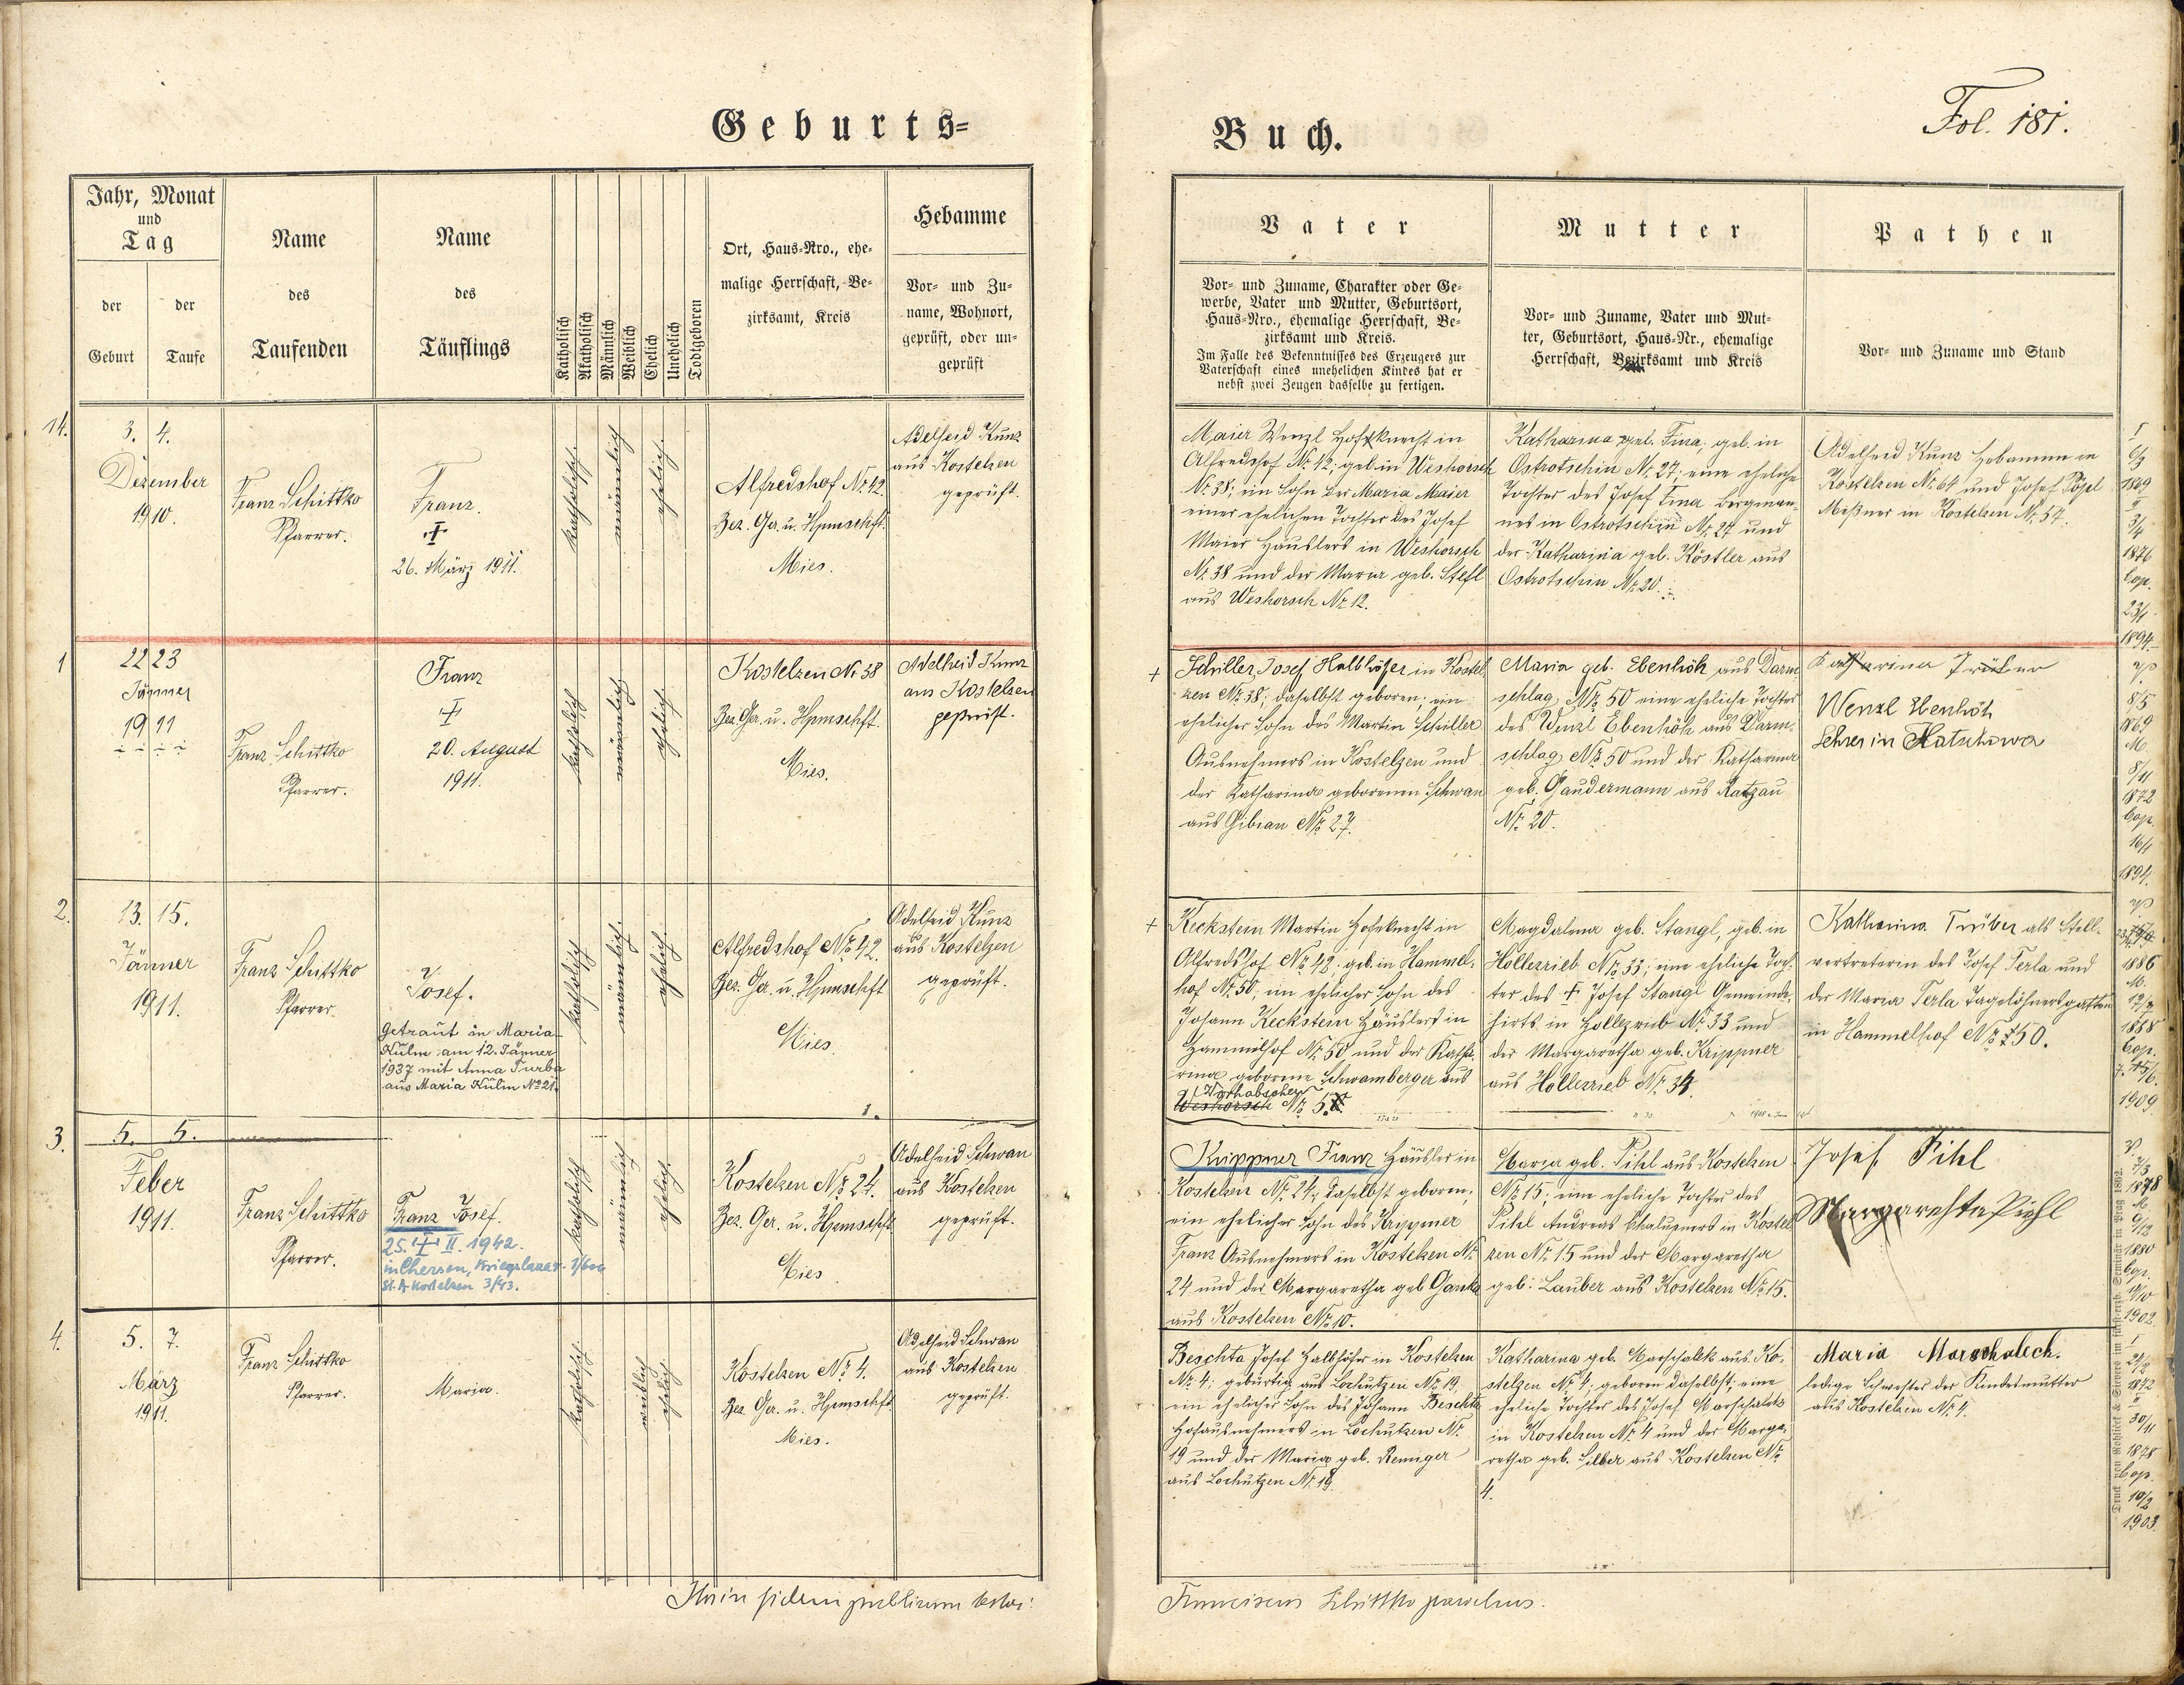 Geburts=
Buch.
Fol. 181.
Jahr, Monat
und
Tag
der
Geburt
der
Taufe
Name
des
Taufenden
Name
des
Täuflings
Katholisch
Akatholisch
Männlich
Weiblich
Ehelich
Unehelich
Todtgeboren
Ort, Haus-Nro., ehe-
malige Herrschaft, Be-
zirksamt, Kreis
Hebamme
Vor- und Zu-
name, Wohnort,
geprüft, oder un-
geprüft
Vater
Vor- und Zuname, Charakter oder Ge-
werbe, Vater und Mutter, Geburtsort,
Haus-Nro., ehemalige Herrschaft, Be-
zirksamt und Kreis.
Im Falle des Bekenntnisses des Erzeugers zur
Vaterschaft eines unehelichen Kindes hat er
nebst zwei Zeugen dasselbe zu fertigen.
Mutter
Vor- und Zuname, Vater und Mut-
ter, Geburtsort, Haus-Nr., ehemalige
Herrschaft, Bezirksamt und Kreis
Pathen
Vor- und Zuname und Stand
14.
3. 4.
Dezember
1910.
Franz Schittko
Pfarrer.
Franz.
26. März 1911.
katholisch.
männlich
ehelich.
Alfredshof Nr. 42.
Bez. Ger. u. Hpmschft.
Mies.
Adelheid Kunz
aus Kostelzen
geprüft.
Maier Wenzl Hofknecht in
Alfredshof Nr. 42; geb. in Weshorsch
Nr. 38; ein Sohn der Maria Maier
einer ehelichen Tochter des Josef
Maier Häuslers in Weshorsch
Nr. 38 und der Maria geb. Stefl
aus Weshorsch Nr. 12.
Katharina geb. Fina, geb. in
Ostrotschin Nr. 27; eine eheliche
Tochter des Josef Fina Bergman-
nes in Ostrotschin Nr. 27 und
der Katharina geb. Köstler aus
Ostrotschin Nr. 20.
Adelheid Kunz Hebamme in
Kostelzen Nr. 64 und Josef Pögl
Meßner in Kostelzen Nr. 57.
1869
3/4
1876
Cop.
23/1
1894.
1
22 23
Jänner
1911
Franz Schittko
Pfarrer.
Franz
20. August
1911.
katholisch
männlich
ehelich.
Kostelzen Nr 38
Bez. Ger. u. Hpmschft.
Mies.
Adelheid Kunz
aus Kostelzen
geprüft.
Schiller, Josef Halbhöfer in Kostel-
zen Nr. 38; daselbst geboren; ein
ehelicher Sohn des Martin Schiller
Ausnehmers in Kostelzen und
der Katharina geborenen Schwan
aus Gibian Nr. 27.
Maria geb. Ebenhöh aus Darm-
schlag Nr. 50 eine eheliche Tochter
des Wenzl Ebenhöh aus Darm-
schlag Nr. 50 und der Katharina
geb. Gaudermann aus Ratzau
Nr. 20.
Katharina Trüber
Wenzl Ebenhöh
Lehrer in Hatschowa
8/5
1869
M.
8/11
1872
Cop.
16/1
1894.
2.
13. 15.
Jänner
1911.
Franz Schittko
Pfarrer.
Josef.
Getraut in Maria
Kulm am 12. Jänner
1937 mit Anna Turba
aus Maria Kulm Nº 21.
katholisch
männlich.
ehelich.
Alfredshof Nr. 42.
Bez. Ger. u. Hpmschft
Mies.
Adelheid Kunz
aus Kostelzen
geprüft.
Keckstein Martin Hofknecht in
Alfredshof Nr. 42; geb. in Hammel-
hof Nr. 50; ein ehelicher Sohn des
Johann Keckstein Häuslers in
Hammelhof Nr. 50 und der Katha-
rina geborene Schwamberger aus
Weshorsch Nr. 5.
Magdalena geb. Stangl, geb. in
Hollezrieb Nr. 33; eine eheliche Toch-
ter des † Josef Stangl Gemeinde-
hirts in Hollezrieb Nr. 33 und
der Margaretha geb. Krippner
aus Hollezrieb Nr. 34.
Katharina Trüber als Stell-
vertreterin des Josef Terla und
der Maria Terla Tagelöhnersgattin
in Hammelhof Nr. 50.
1886
M.
1888
Cop.
1909.
3.
5. 5.
Feber
1911.
Franz Schittko
Pfarrer.
Franz Josef.
25. II. 1942.
in Cherson, Kriegslazar. 1/600
St. A Kostelzen 3/43.
katholisch
männlich
ehelich.
Kostelzen Nr. 24.
Bez. Ger. u. Hpmschft
Mies
Adelheid Schwan
aus Kostelzen
geprüft.
Krippner Franz Häusler in
Kostelzen Nr. 24; daselbst geboren;
ein ehelicher Sohn des Krippner
Franz Ausnehmers in Kostelzen Nr.
24 und der Margaretha geb. Ganka
aus Kostelzen Nr. 10.
Maria geb. Pihl aus Kostelzen
Nr. 15; eine eheliche Tochter des
Pihl Andreas Chalupners in Kostel-
zen Nr. 15 und der Margaretha
geb. Lauber aus Kostelzen Nr. 15.
Josef Pihl
Margarehta Piehl
1878
M.
9/12
1880
Cop.
1902.
4.
5. 7.
März
1911.
Franz Schittko
Pfarrer.
Maria.
katholisch.
weiblich
ehelich
Kostelzen Nr. 4.
Bez. Ger. u. Hpmschft
Mies.
Adelheid Schwan
aus Kostelzen
geprüft.
Beschta Josef Halbhöfer in Kostelzen
Nr. 4; gebürtig aus Lochutzen Nr. 19;
ein ehelicher Sohn des Johann Beschta
Hofausnehmers in Lochutzen Nr.
19 und der Maria geb. Renniger
aus Lochutzen Nr. 19.
Katharina geb. Marschalek aus Ko-
stelzen Nr. 4; geboren daselbst; eine
eheliche Tochter des Josef Marschalek
in Kostelzen Nr. 4 und der Marga-
retha geb. Silber aus Kostelzen Nr.
4.
Maria Marschaleck.
ledige Schwester der Kindesmutter
aus Kostelzen Nr. 4.
1872
30/11
1878
Cop.
10/2
1903.
In fidem publicam
Franciscus Schittko parochus.